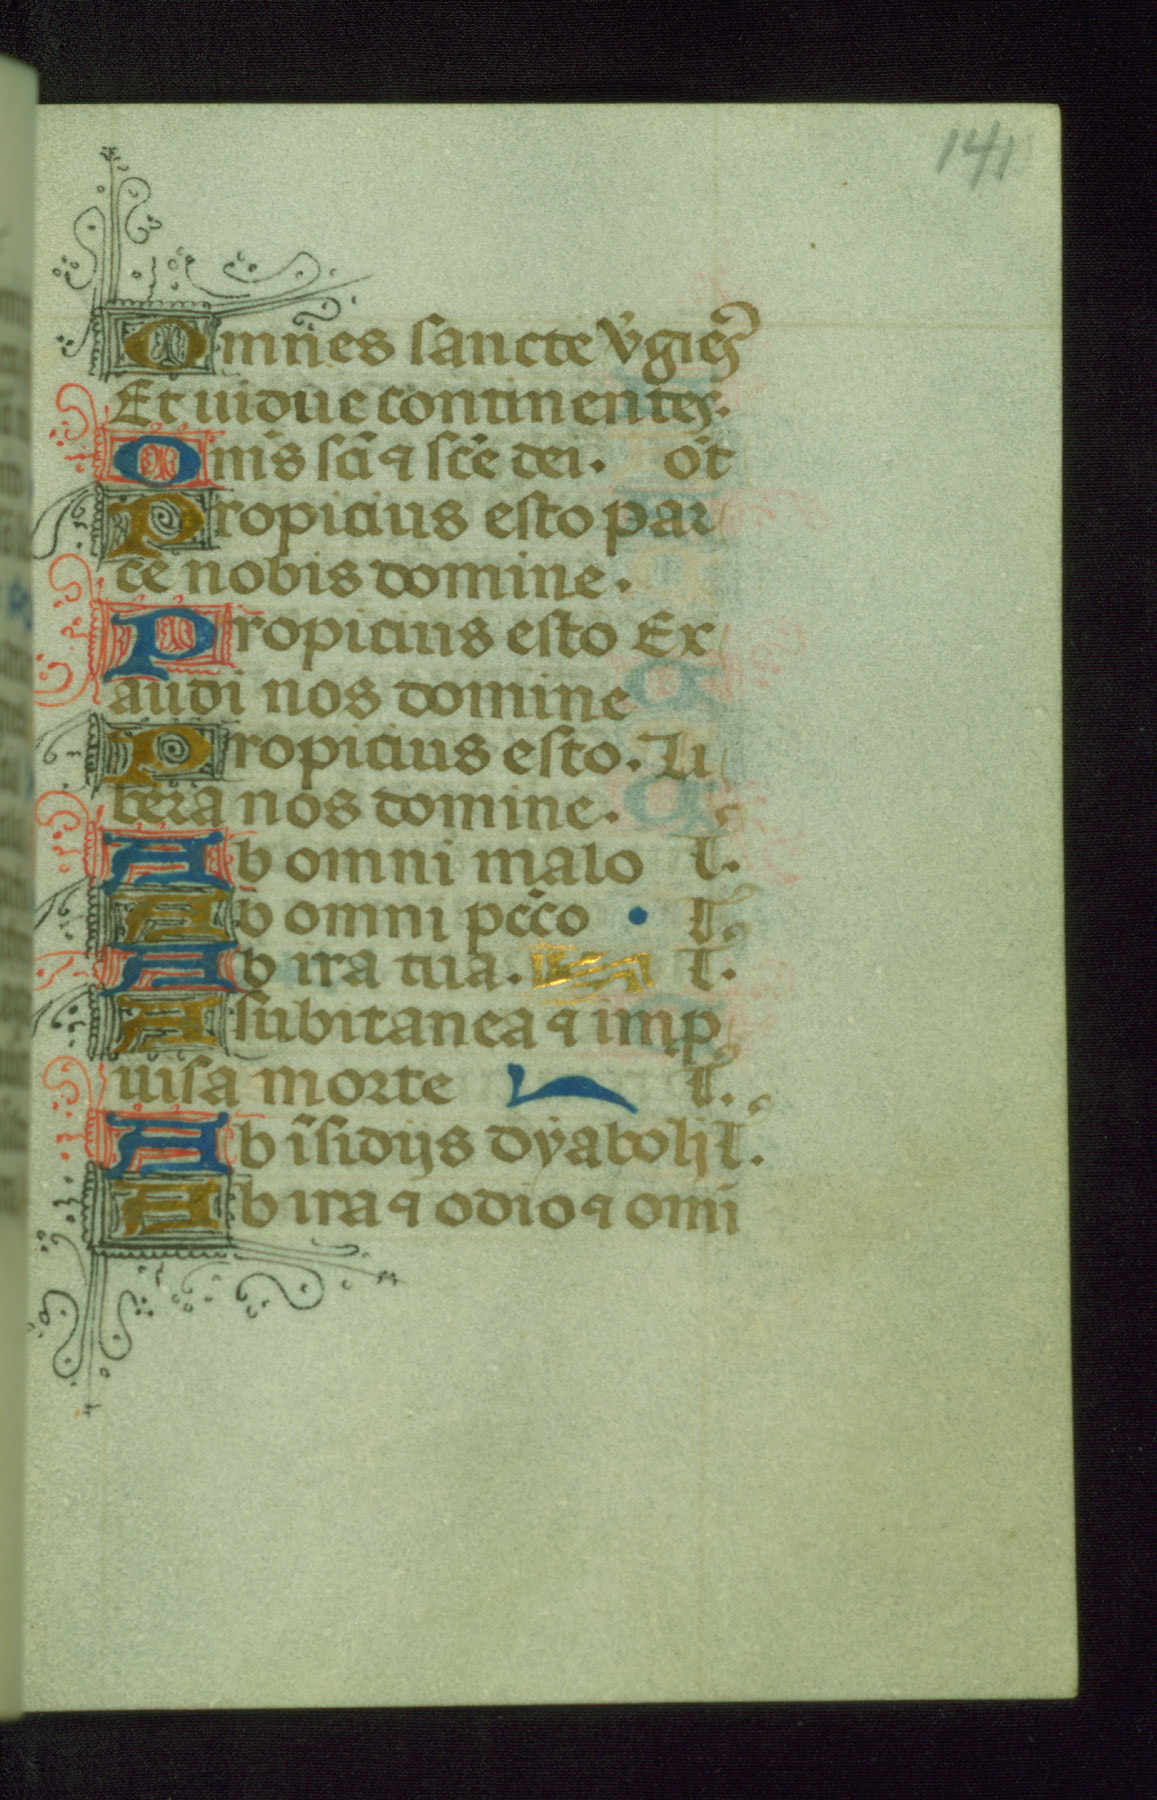 141
Omnes sancte v̓gies
Et uidue continentes.
Om̄s sc̄i ⁊ sc̄e dei. or̄t
Propicius esto par
ce nobis domine.
Propicius esto Ex
audi nos domine
Propicius esto. Li
bera nos domine.
Ab omni malo l.
Ab omni pcc̄o l.
Ab ira tua. l.
A subitanea ⁊ imp
uisa morte l.
Ab īsidijs dyaboli l.
Ab ira ⁊ odio ⁊ omī